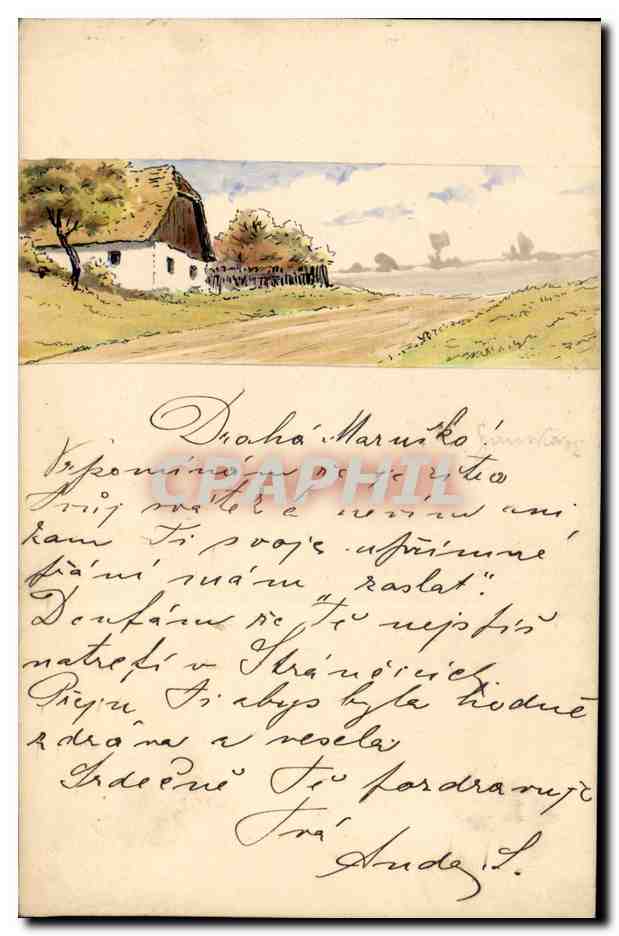 Drahá Maruško!
Vzpomínám že je zítra
Tvůj svátek a nevím ani
kam Ti svoje upřímné
přání mám "zaslat".
Doufám že Tě nejspíš
natrefí v Stránčicích.
Přeju Ti abys byla hodně
zdráva a veselá
Srdečně Tě pozdravuje
Tvá
S.
CPARHIL